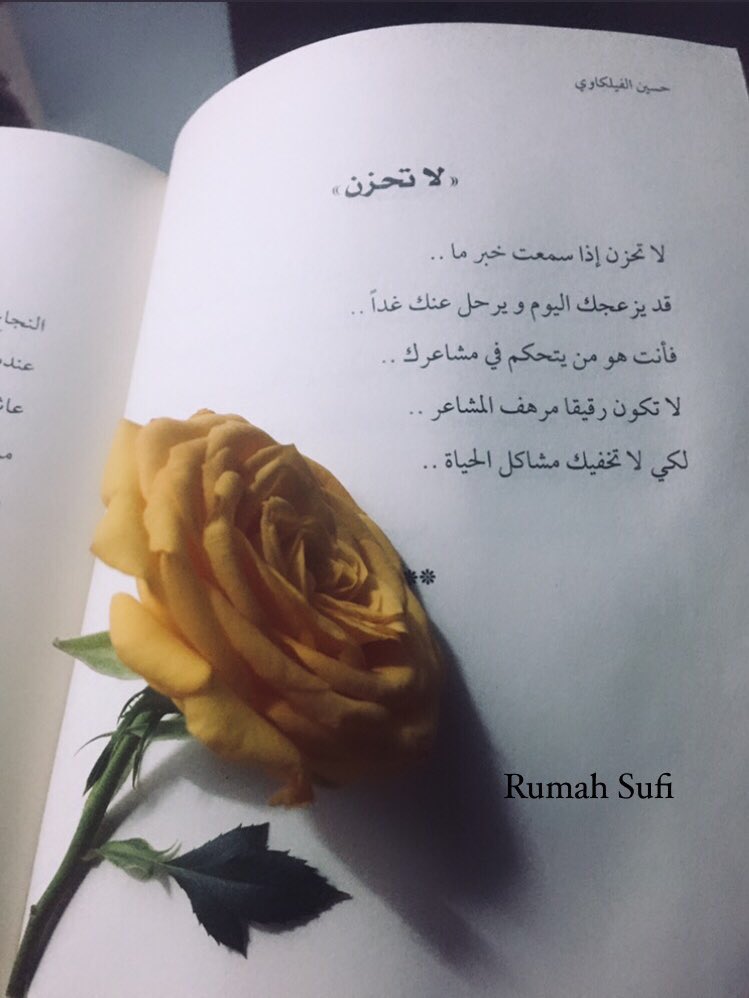 حسين الفيلكاوي
«لا تحزن»
لا تحزن إذا سمعت خبر ما ..
قد يزعجك اليوم و يرحل عنك غداً ..
فأنت هو من يتحكم في مشاعرك ..
لا تكون رقيقا مرهف المشاعر ..
لكي لا تخفيك مشاكل الحياة ..
**
Rumah Sufi